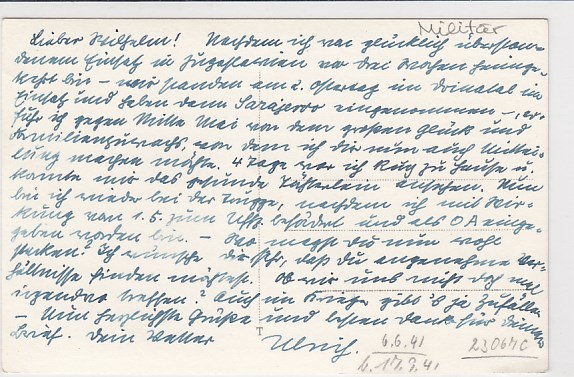 Militär
Lieber Wilhelm! Nachdem ich von glücklich überstan-
denem Einsatz in Jugoslawien vor drei Wochen heimge-
kehrt bin – wir standen am 2. Ostertag im Drinatal im
Einsatz und haben dann Sarajewo eingenommen –, er-
fuhr ich gegen Mitte Mai von dem großen Glück und
Familienzuwachs, von dem ich dir nun auch Mittei-
lung machen möchte. 4 Tage war ich Kurz zu Hause u.
konnte mir das gesunde Töchterlein ansehen. Nun
bin ich wieder bei der Truppe, nachdem ich mit Wir-
kung vom 1.5. zum Uffz. befördert und als O A einge-
geben worden bin. – Wo magst du nun wohl
stecken? Ich wünsche dir sehr, daß du angenehme Ver-
hältnisse finden möchtest. Ob wir uns nicht doch mal
irgendwo treffen? Auch im Kriege gibt's ja Zufälle.
– Nun herzlichste Grüße und besten Dank für deinen
Brief. Dein Vetter Ulrich.
6.6.41
b. 17.7.41
23067C